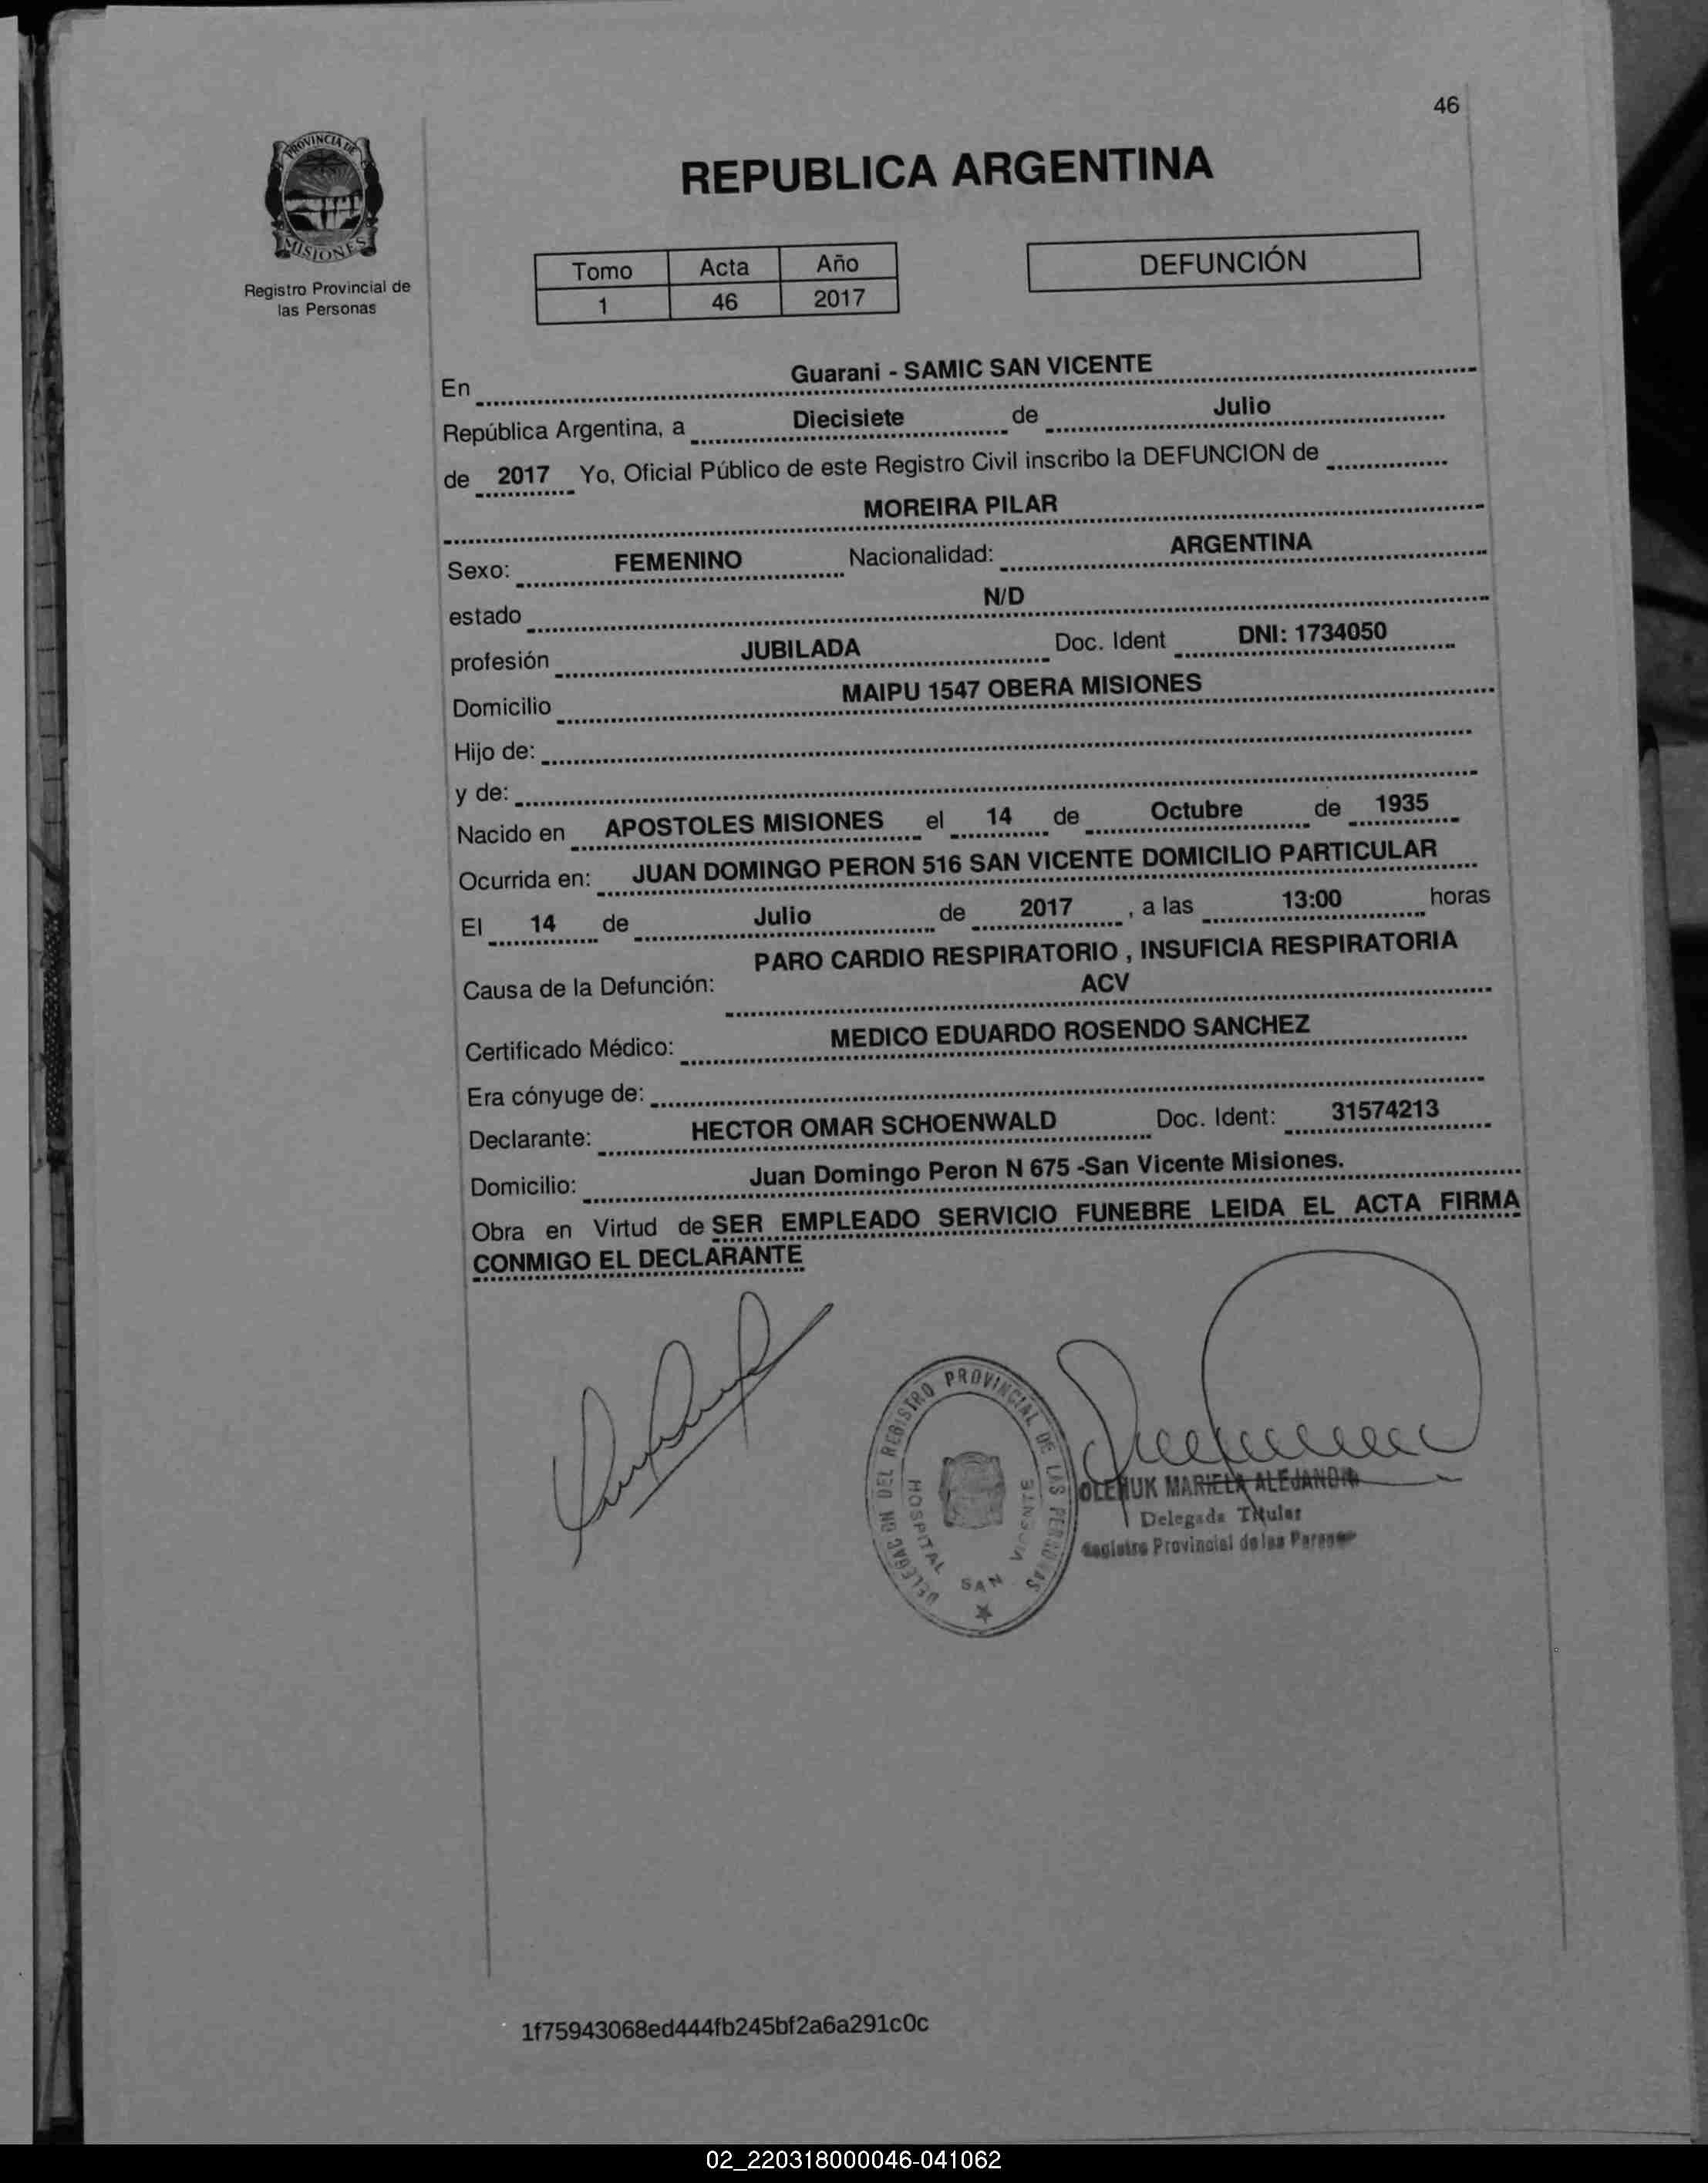 46
PROVINCIA DE
MISIONES
Registro Provincial de
las Personas
REPUBLICA ARGENTINA
Tomo Acta Año
1 46 2017
DEFUNCIÓN
En Guarani - SAMIC SAN VICENTE
República Argentina, a Diecisiete de Julio
de 2017 Yo, Oficial Público de este Registro Civil inscribo la DEFUNCION de
MOREIRA PILAR
Sexo: FEMENINO Nacionalidad: ARGENTINA
estado N/D
profesión JUBILADA Doc. Ident DNI: 1734050
Domicilio MAIPU 1547 OBERA MISIONES
Hijo de:
y de:
Nacido en APOSTOLES MISIONES el 14 de Octubre de 1935
Ocurrida en: JUAN DOMINGO PERON 516 SAN VICENTE DOMICILIO PARTICULAR
El 14 de Julio de 2017 , a las 13:00 horas
PARO CARDIO RESPIRATORIO , INSUFICIA RESPIRATORIA
Causa de la Defunción: ACV
Certificado Médico: MEDICO EDUARDO ROSENDO SANCHEZ
Era cónyuge de:
Declarante: HECTOR OMAR SCHOENWALD Doc. Ident: 31574213
Domicilio: Juan Domingo Peron N 675 -San Vicente Misiones.
Obra en Virtud de SER EMPLEADO SERVICIO FUNEBRE LEIDA EL ACTA FIRMA
CONMIGO EL DECLARANTE
DEL REGISTRO PROVINCIAL DE LAS PERSONAS
HOSPITAL SAN VICENTE
MARIELA
Delegada Titular
Provincial de las
1f75943068ed444fb245bf2a6a291c0c
02_220318000046-041062